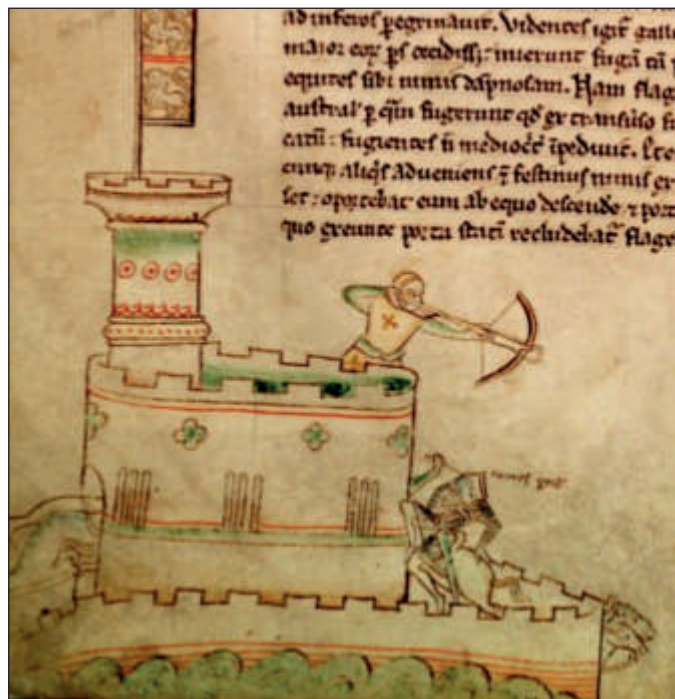 ad inferos ꝑegrinauit. Videntes igit̄ gall
maior eoꝝ ps cecidiss; : inierunt fugā cū
equites sibi nimis dāpnosam. Nam flag
austral' ꝑ fugerunt qđ ex
catū : fugientes ñ mediocr̄ īpediuit.
aliqis adueniens ⁊ festinus nimis ex
let : oportebat eum ab equo descende ⁊ port
quo exeunte porta statī recludebat̄ flage
comes